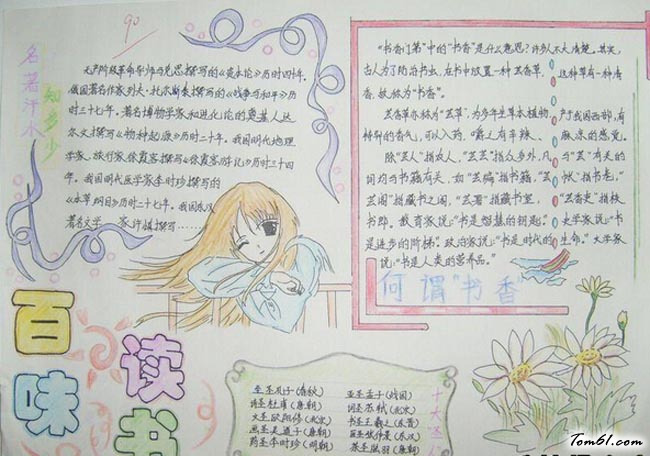 90
名著汗水
知多少
无产阶级革命导师马克思撰写的《资本论》历时四十年。
俄国著名作家列夫·托尔斯泰撰写的《战争与和平》历
时三十七年。著名博物学家和进化论的奠基人达
尔文撰写《物种起源》历时二十年。我国明代地理
学家、旅行家徐霞客撰写《徐霞客游记》历时三十四
年。我国明代医学家李时珍撰写的
《本草纲目》历时三十七年。我国东汉
著名文学家许慎撰写……
"书香门第"中的"书香"是什么意思?许多人不大清楚。其实,
古人为了防治书虫,在书中放置一种芸香草,这种草有一种清
香,故称为"书香"。
芸香草亦称为"芸草",为多年生草本植物,产于我国西部,有
特异的香气,可以入药,嚼之有辛辣、麻凉的感觉。
除"芸人"指农人,"芸芸"指众多外,凡与"芸"有关的
词均与书籍有关,如"芸编"指书籍,"芸帙"指书老,"
芸阁"指藏书之阁,"芸署"指藏书室,"芸香吏"指校
书郎。教育家说:"书是智慧的钥匙。"史学家说:"书
是进步的阶梯。"政治家说:"书是时代的生命。"文学家
说:"书是人类的营养品。"
何谓"书香"
百味
读书
至圣孔子(春秋)
亚圣孟子(战国)
诗圣杜甫(唐朝)
词圣苏轼(北宋)
文圣欧阳修(北宋)
书圣王羲之(东晋)
画圣吴道子(唐朝)
医圣张仲景(东汉)
药圣李时珍(明朝)
茶圣陆羽(唐朝)
十大圣人
Tom61.com